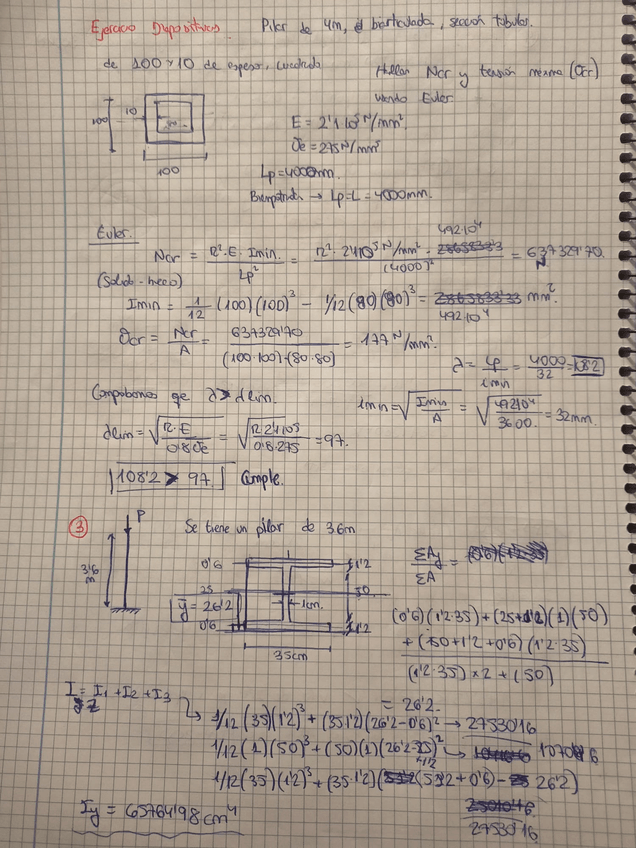 Ejercicio Diapositivas. Pilar de 4m, biarticulada, sección tubular.
de 100x10 de espesor, cuadrado
Hallar Ncr y tensión maxima (σcr)
usando Euler
100
10
80
100
E = 2'1 10⁵ N/mm².
σe = 275 N/mm²
Lp = 4000mm.
Biempotrada → Lp=L = 4000mm.
Euler.
(Solido-hueco)
Ncr = π²·E·Imin. / Lp² = π²· 2'1 10⁵ N/mm² · 492 10⁴ / (4000)² = 637329'70. N
Imin = 1/12 (100)(100)³ - 1/12 (80)(80)³ = 492 10⁴ mm².
σcr = Ncr / A = 637329'70 / (100·100)-(80·80) = 177 N/mm².
λ = Lp / imin = 4000 / 32 = 108'2
Comprobamos que λ > λlim.
imin = √(Imin / A) = √(492 10⁴ / 3600) = 32mm.
λlim = √(π·E / 0'8σe) = √(π 2'1 10⁵ / 0'8·275) = 97.
108'2 > 97 Cumple.
3
P
3'6 m
Se tiene un pilar de 3.6m
0'6
1'2
25
50
ȳ = 26'2
1cm.
0'6
1'2
35cm
ΣAy / ΣA =
(0'6)(1'2·35) + (25+1'2)(1)(50)
+ (50+1'2+0'6)(1'2·35)
(1'2·35)x2 + (50)
= 26'2.
I = I₁ + I₂ + I₃
1/12 (35)(1'2)³ + (35 1'2)(26'2-0'6)² → 27530'16
1/12 (1)(50)³ + (50)(1)(26'2-25)² → 107046
1/12 (35)(1'2)³ + (35·1'2)(51'2 + 0'6 - 26'2)
27530'16.
Iy = 65764'98 cm⁴